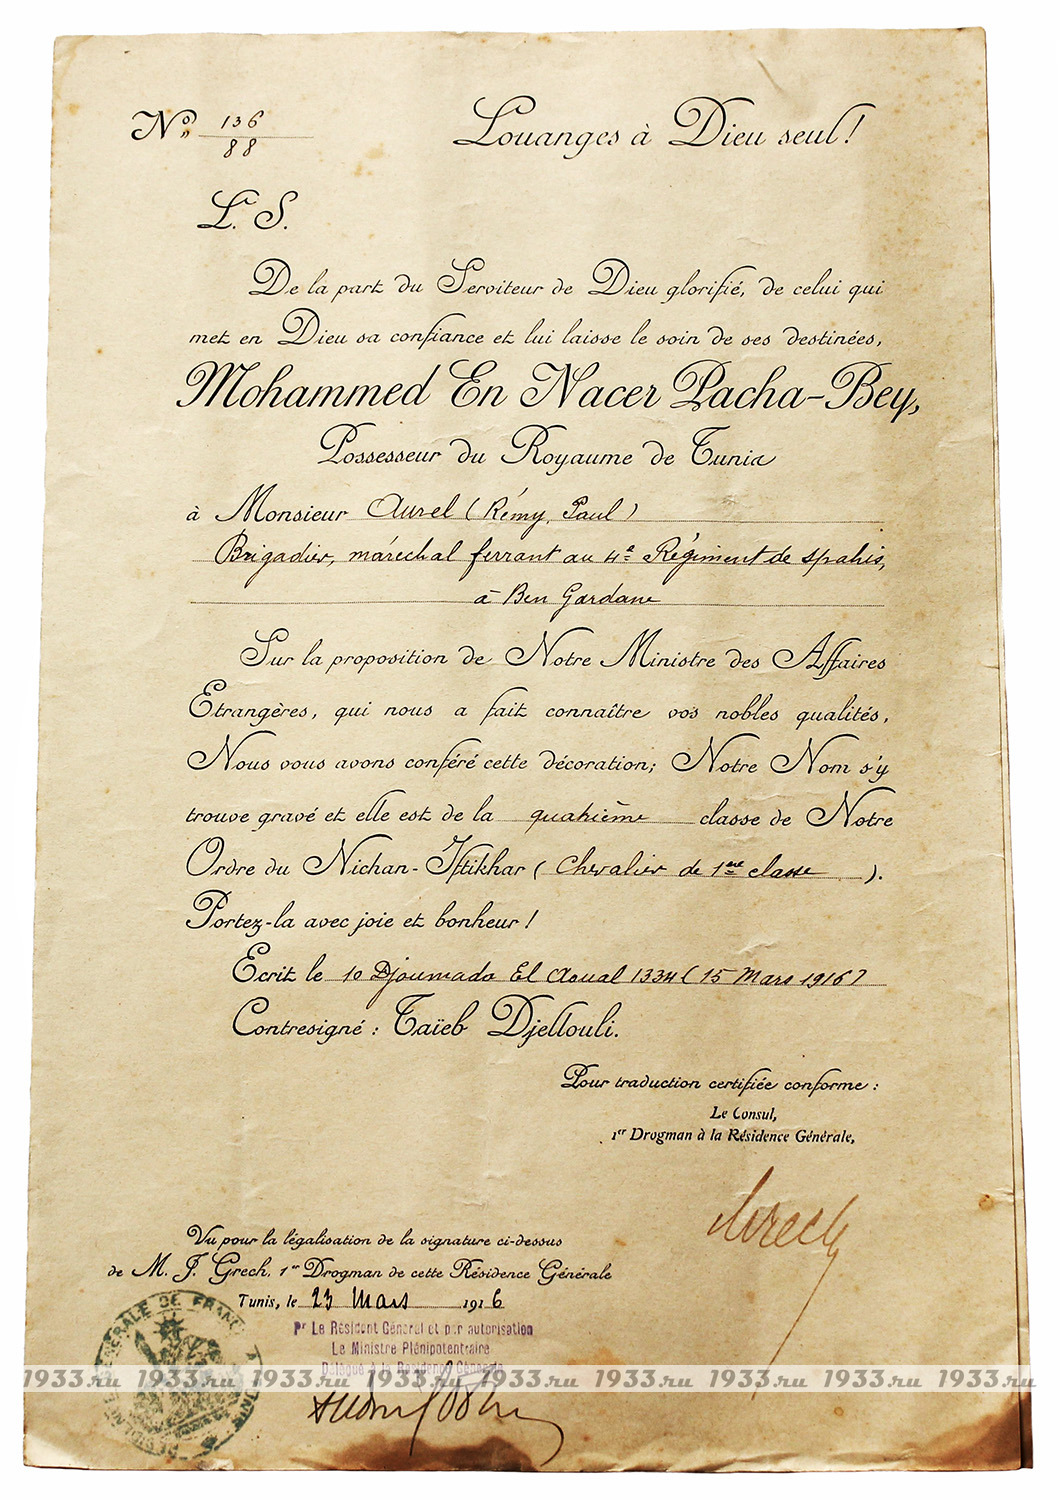 Nº 136
88
Louanges à Dieu seul!
L. S.
De la part du Serviteur de Dieu glorifié, de celui qui
met en Dieu sa confiance et lui laisse le soin de ses destinées,
Mohammed En Nacer Pacha-Bey,
Possesseur du Royaume de Tunis
à Monsieur Aurel (Rémy, Paul)
Brigadier, maréchal ferrant au 4e Régiment de spahis,
à Ben Gardane
Sur la proposition de Notre Ministre des Affaires
Etrangères, qui nous a fait connaître vos nobles qualités,
Nous vous avons conféré cette décoration; Notre Nom s'y
trouve gravé et elle est de la quatrième classe de Notre
Ordre du Nichan-Iftikhar (Chevalier de 1ère classe).
Portez-la avec joie et bonheur!
Ecrit le 10 Djoumada El Aoual 1334 (15 Mars 1916)
Contresigné: Taïeb Djellouli.
Pour traduction certifiée conforme:
Le Consul,
1er Drogman à la Résidence Générale,
Grech
Vu pour la légalisation de la signature ci-dessus
de M. J. Grech, 1er Drogman de cette Résidence Générale
Tunis, le 23 Mars 1916
Pr Le Résident Général et par autorisation
Le Ministre Plénipotentiaire
Délégué à la Résidence Générale
1933.ru 1933.ru 1933.ru 1933.ru 1933.ru 1933.ru 1933.ru 1933.ru 1933.ru